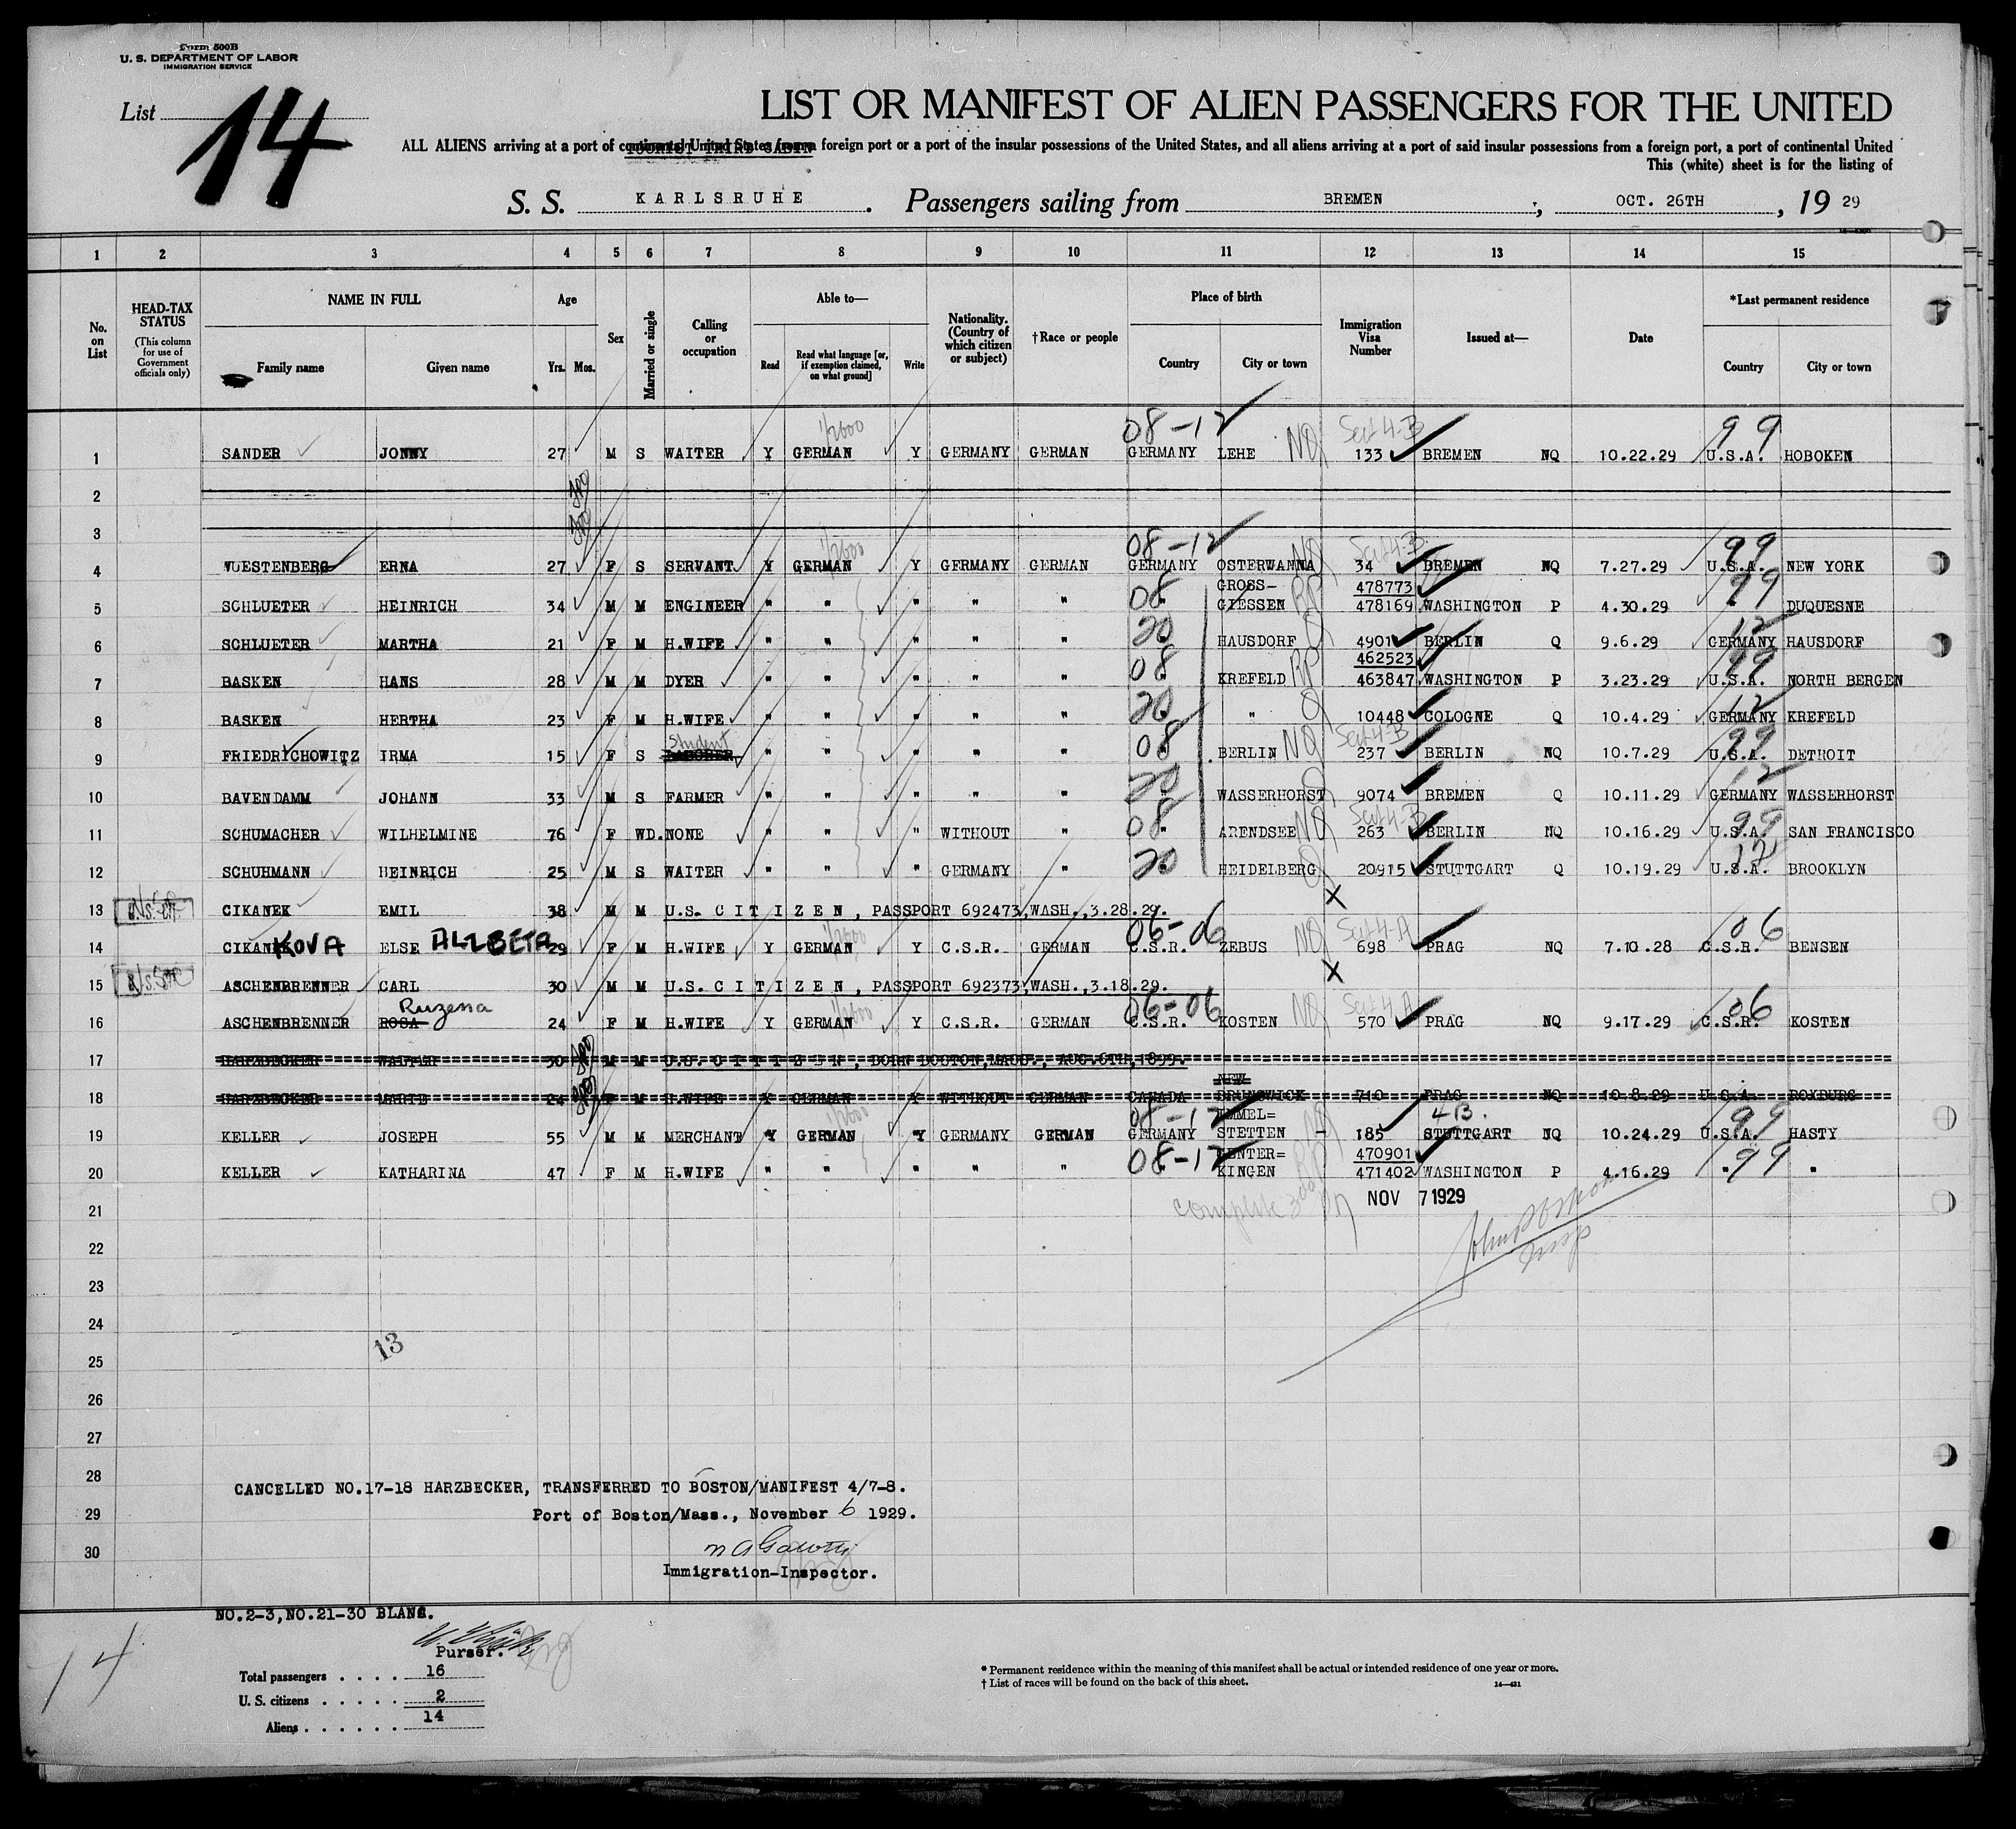 Form 500B
U. S. DEPARTMENT OF LABOR
IMMIGRATION SERVICE
List 14
LIST OR MANIFEST OF ALIEN PASSENGERS FOR THE UNITED
ALL ALIENS arriving at a port of continental United States from a foreign port or a port of the insular possessions of the United States, and all aliens arriving at a port of said insular possessions from a foreign port, a port of continental United
TOURIST THIRD CABIN
This (white) sheet is for the listing of
S. S. KARLSRUHE. Passengers sailing from BREMEN, OCT. 26TH, 19 29
1 2 3 4 5 6 7 8 9 10 11 12 13 14 15
No. on List
HEAD-TAX STATUS (This column for use of Government officials only)
NAME IN FULL Family name Given name
Age Yrs. Mos.
Sex
Married or single
Calling or occupation
Able to— Read Read what language [or, if exemption claimed, on what ground] Write
Nationality. (Country of which citizen or subject)
†Race or people
Place of birth Country City or town
Immigration Visa Number
Issued at—
Date
*Last permanent residence Country City or town
08-12 NQ Sect 4-B 99
1 SANDER JONNY 27 M S WAITER Y GERMAN Y GERMANY GERMAN GERMANY LEHE 133 BREMEN NQ 10.22.29 U.S.A. HOBOKEN
2
3
08-12 NQ Sect 4-B 99
4 WUESTENBERG ERNA 27 F S SERVANT Y GERMAN Y GERMANY GERMAN GERMANY OSTERWANNA 34 BREMEN NQ 7.27.29 U.S.A. NEW YORK
GROSS- 478773
5 SCHLUETER HEINRICH 34 M M ENGINEER " " " " " 08 GIESSEN RP 478169 WASHINGTON P 4.30.29 " 99 DUQUESNE
6 SCHLUETER MARTHA 21 F M H.WIFE " " " " " 20 HAUSDORF Q 4901 BERLIN Q 9.6.29 GERMANY 12 HAUSDORF
462523
7 BASKEN HANS 28 M M DYER " " " " " 08 KREFELD RP 463847 WASHINGTON P 3.23.29 U.S.A. 99 NORTH BERGEN
8 BASKEN HERTHA 23 F M H.WIFE " " " " " 20 " Q 10448 COLOGNE Q 10.4.29 GERMANY 12 KREFELD
Student Sect 4-B
9 FRIEDRICHOWITZ IRMA 15 F S " " " " " 08 BERLIN NQ 237 BERLIN NQ 10.7.29 U.S.A. 99 DETROIT
10 BAVENDAMM JOHANN 33 M S FARMER " " " " " 20 WASSERHORST Q 9074 BREMEN Q 10.11.29 GERMANY 12 WASSERHORST
Sect 4-B
11 SCHUMACHER WILHELMINE 76 F WD. NONE " " " WITHOUT " 08 ARENDSEE NQ 263 BERLIN NQ 10.16.29 U.S.A. 99 SAN FRANCISCO
12 SCHUHMANN HEINRICH 25 M S WAITER " " " GERMANY " 20 HEIDELBERG Q 20915 STUTTGART Q 10.19.29 U.S.A. 12 BROOKLYN
13 CIKANEK EMIL 38 M M U.S. CITIZEN, PASSPORT 692473, WASH., 3.28.29. X
06-06 NQ Sect 4-A 06
14 CIKANEKOVA ELSE ALZBETA 29 F M H.WIFE Y GERMAN Y C.S.R. GERMAN C.S.R. ZEBUS 698 PRAG NQ 7.10.28 C.S.R. BENSEN
15 ASCHENBRENNER CARL 30 M M U.S. CITIZEN, PASSPORT 692373, WASH., 3.18.29. X
Ruzena 06-06 NQ Sect 4-A 06
16 ASCHENBRENNER ROSA 24 F M H.WIFE Y GERMAN Y C.S.R. GERMAN C.S.R. KOSTEN 570 PRAG NQ 9.17.29 C.S.R. KOSTEN
17 HARZBECKER WALTER 30 M M U.S. CITIZEN, BORN BOSTON, MASS., AUG. 6TH, 1899.
NEW
18 HARZBECKER MARIE 24 F M H.WIFE Y GERMAN Y WITHOUT GERMAN CANADA BRUNSWICK 710 PRAG NQ 10.8.29 U.S.A. ROXBURG
08-12 4B. 99
19 KELLER JOSEPH 55 M M MERCHANT Y GERMAN Y GERMANY GERMAN GERMANY STETTEN 185 STUTTGART NQ 10.24.29 U.S.A. HASTY
470901
20 KELLER KATHARINA 47 F M H.WIFE " " " " " 08-12 KINGEN 471402 WASHINGTON P 4.16.29 " 99 "
21 complete NOV 7 1929
22
23
24
13
25
26
27
28
CANCELLED NO.17-18 HARZBECKER, TRANSFERRED TO BOSTON/MANIFEST 4/7-8.
29 Port of Boston/Mass., November 6 1929.
30
Immigration-Inspector.
NO.2-3, NO.21-30 BLANC.
Purser.
14
Total passengers . . . . 16
U. S. citizens . . . . . 2
Aliens . . . . . . 14
* Permanent residence within the meaning of this manifest shall be actual or intended residence of one year or more.
† List of races will be found on the back of this sheet.
14—431